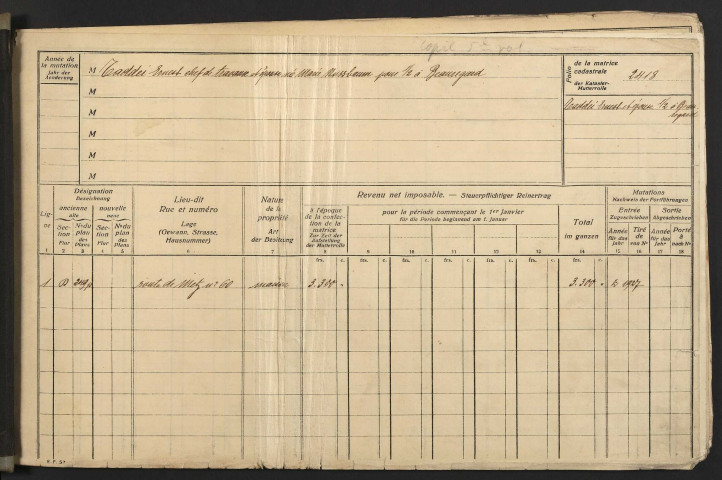 Année de la mutation
Jahr der Aenderung
M Taddéi Ernest chef de travaux et épouse né Marie Nussbaum pour 1/2 à Beauregard
M
M
M
M
M
Folio
de la matrice cadastrale
der Kataster-Mutterrolle
2418
Taddéi Ernest et épouse 1/2 à Beauregard
Lig-ne
Désignation
Bezeichnung
ancienne
alte
nouvelle
neue
Section
Flur
No du plan
des Plans
Section
Flur
No du plan
des Plans
Lieu-dit
Rue et numéro
Lage
(Gewann, Strasse, Hausnummer)
Nature
de la
propriété
Art
der Besitzung
Revenu net imposable. — Steuerpflichtiger Reinertrag
à l'époque de la confection de la matrice
Zur Zeit der Aufstellung der Mutterrolle
pour la période commençant le 1er Janvier
für die Periode beginnend am 1. Januar
Total
im ganzen
Mutations
Nachweis der Fortführungen
Entrée
Zugeschrieben
Sortie
Abgeschrieben
Année
für das Jahr
Tiré de
von No
Année
für das Jahr
Porté à
nach No
1 2 3 4 5 6 7 8 9 10 11 12 13 14 15 16 17 18
frs. c. frs. c. frs. c. frs. c. frs. c. frs. c. frs. c.
1 D route de Metz no 60 maison 3.300 3.300 1927